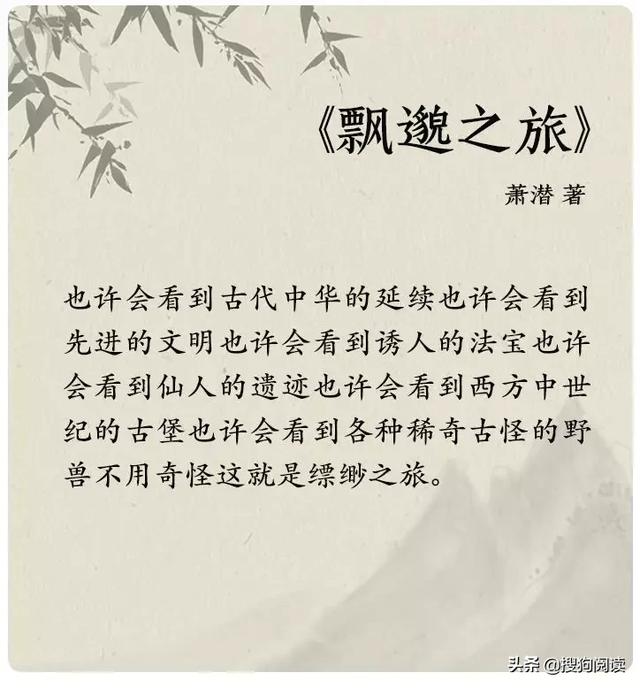 《飘邈之旅》
萧潜 著
也许会看到古代中华的延续也许会看到
先进的文明也许会看到诱人的法宝也许
会看到仙人的遗迹也许会看到西方中世
纪的古堡也许会看到各种稀奇古怪的野
兽不用奇怪这就是缥缈之旅。
头条 @搜狗阅读